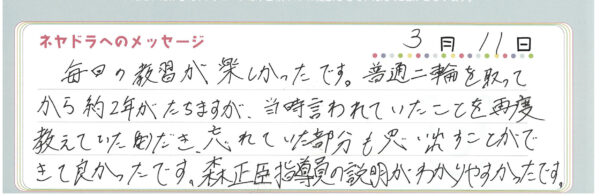 ネヤドラへのメッセージ
3月11日
毎日の教習が楽しかったです。普通二輪を取って
から約2年がたちますが、当時言われていたことを再度
教えていただき、忘れていた部分も思い出すことがで
きて良かったです。森正臣指導員の説明がわかりやすかったです。